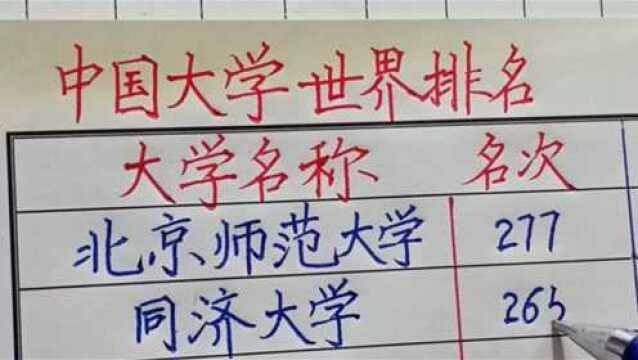 中国大学世界排名
大学名称 名次
北京师范大学 277
同济大学 265